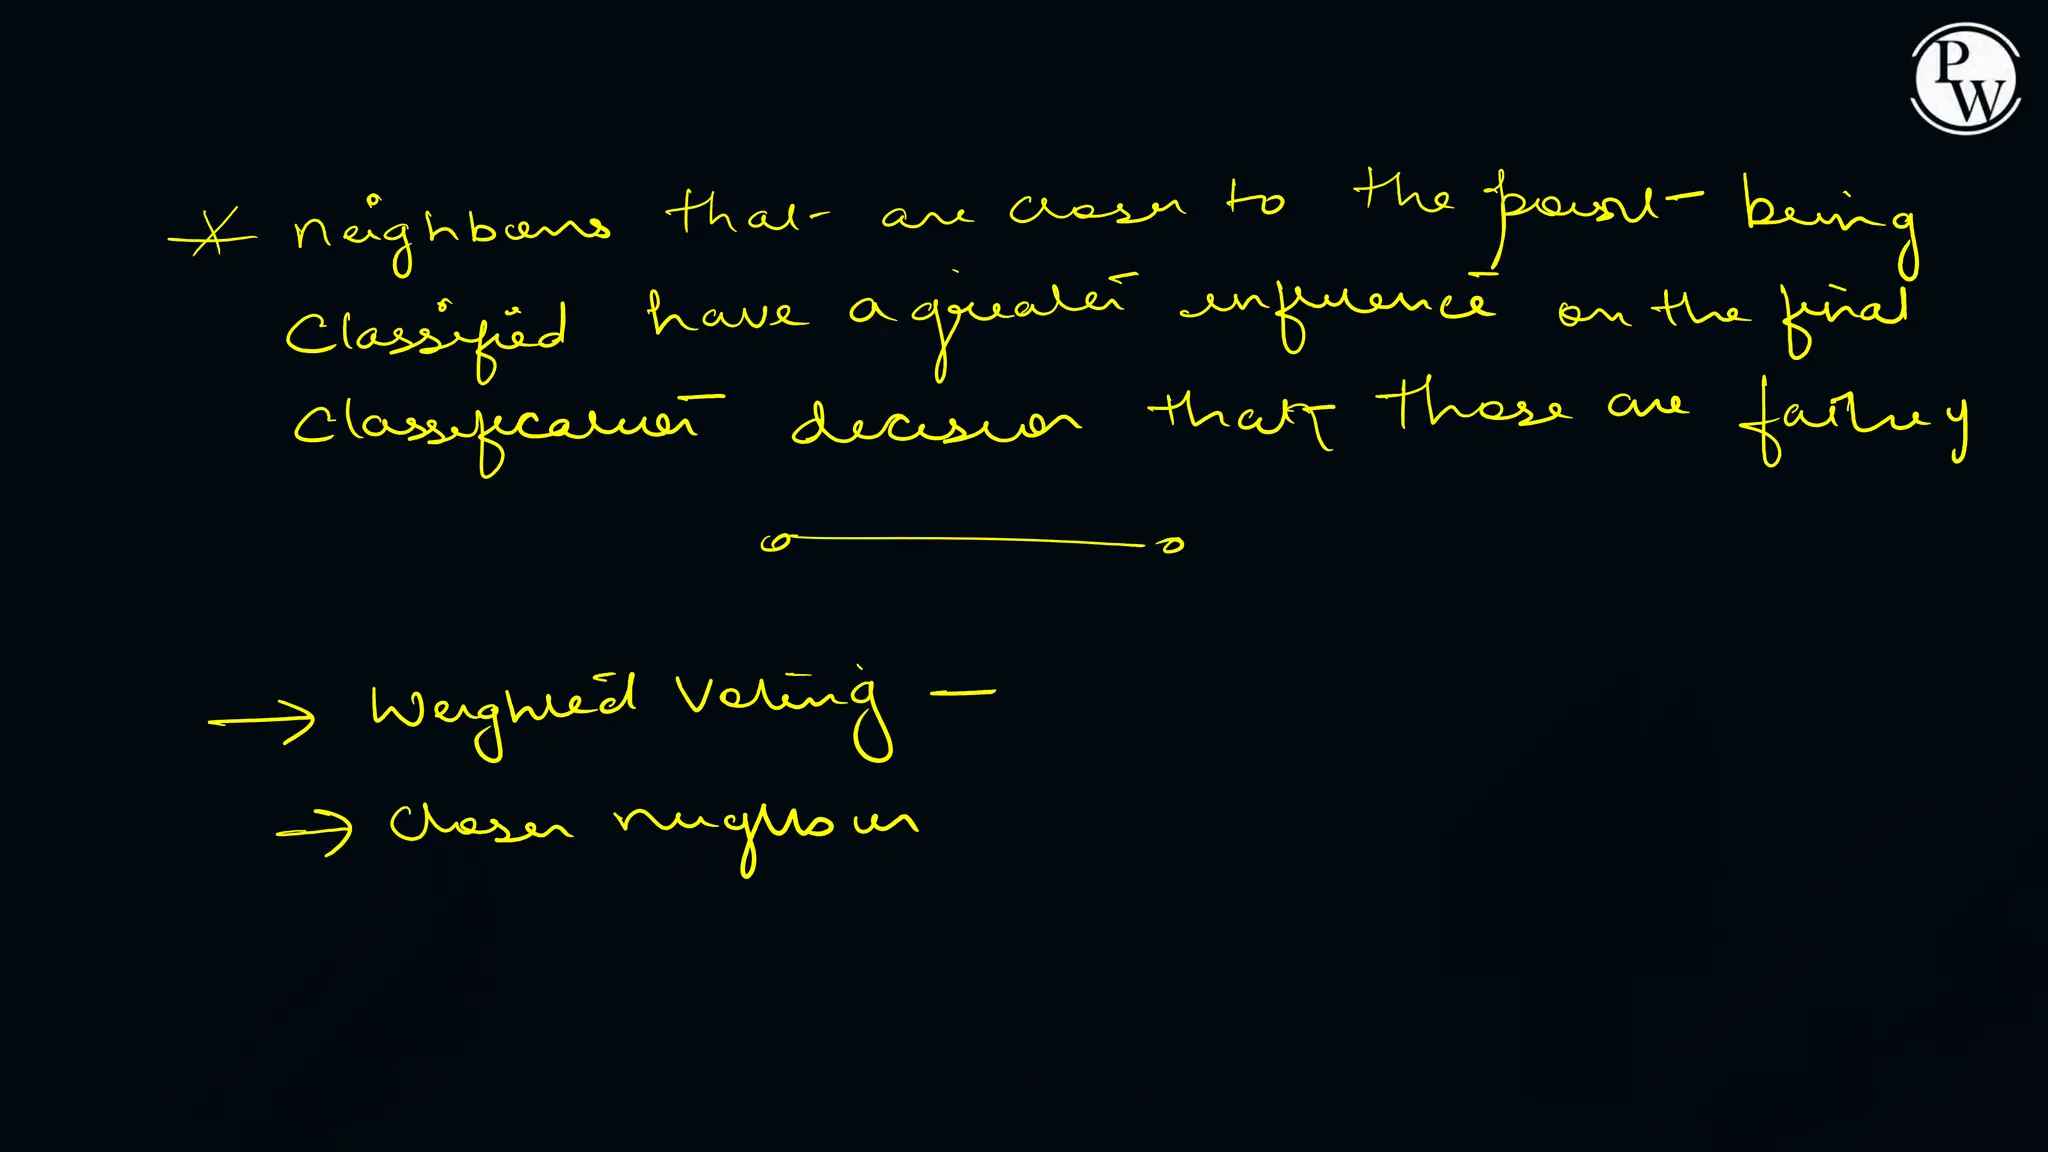 PW
* neighbours that are closer to the point being
classified have a greater influence on the final
classification decision that those are
→ Weighted Voting —
→ closer neighbour